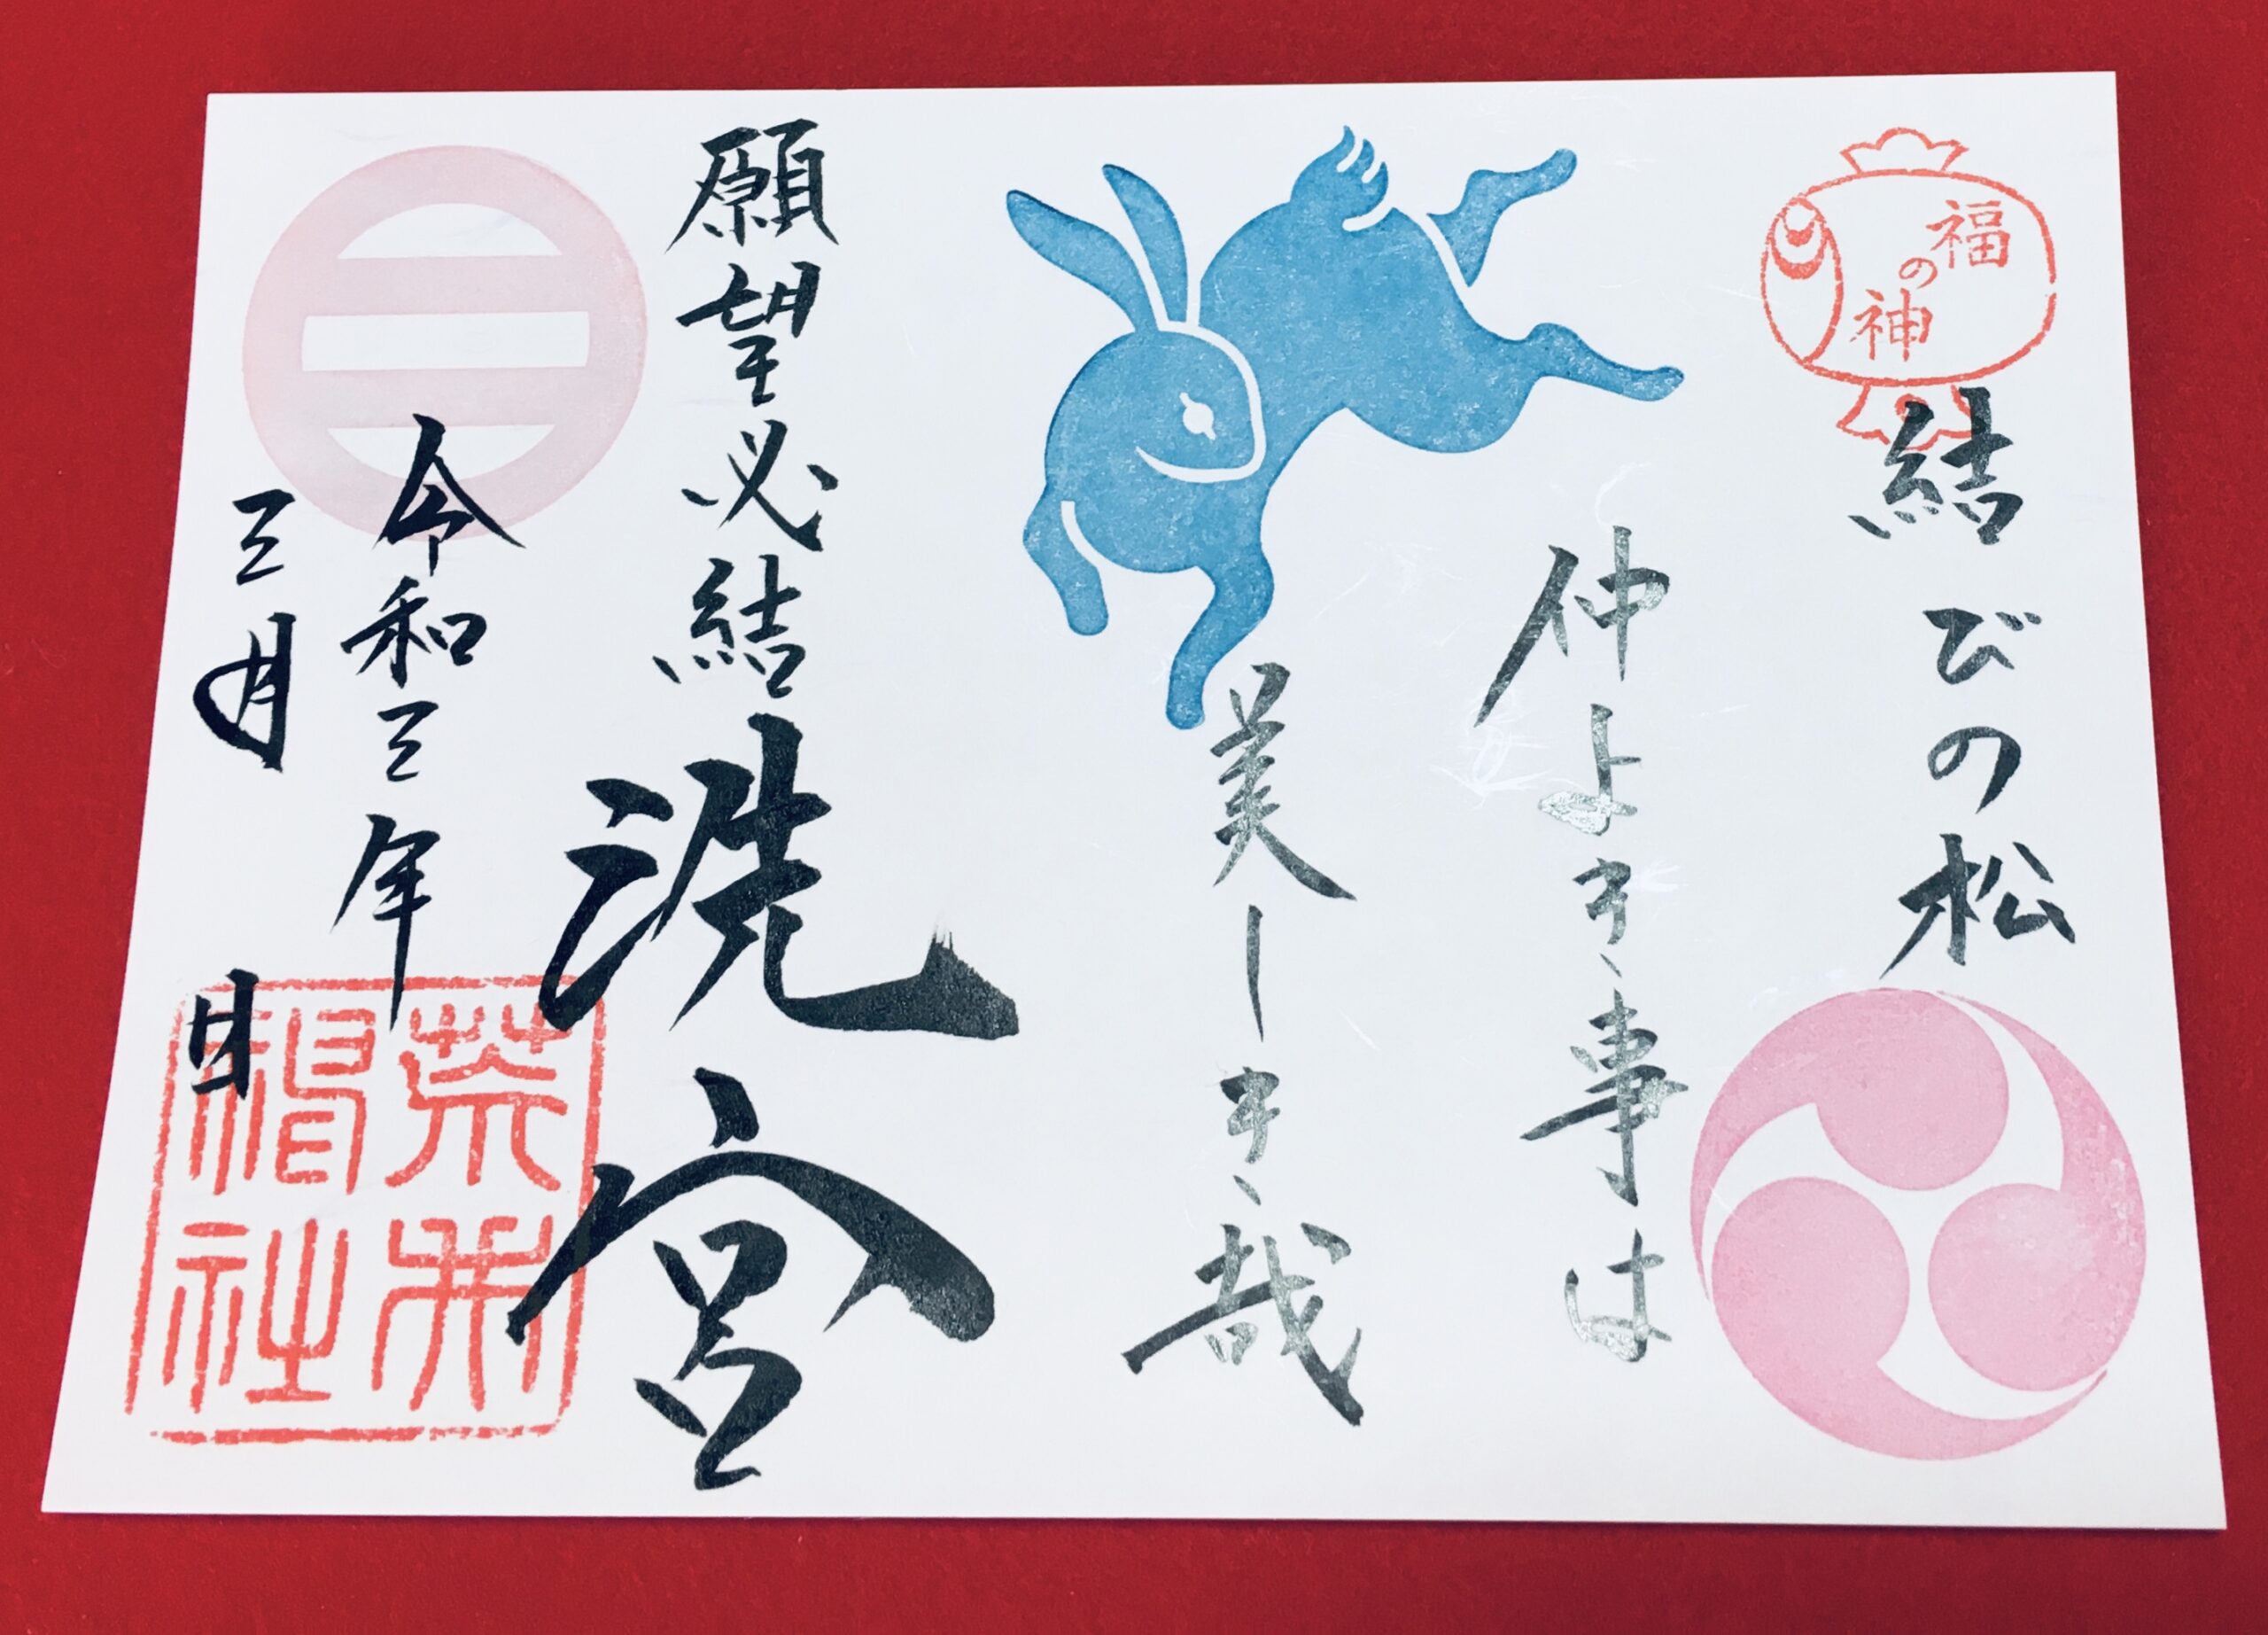 福の神
結びの松
仲よき事は
美しき哉
願望必結
洗宮
令和三年
三月 日